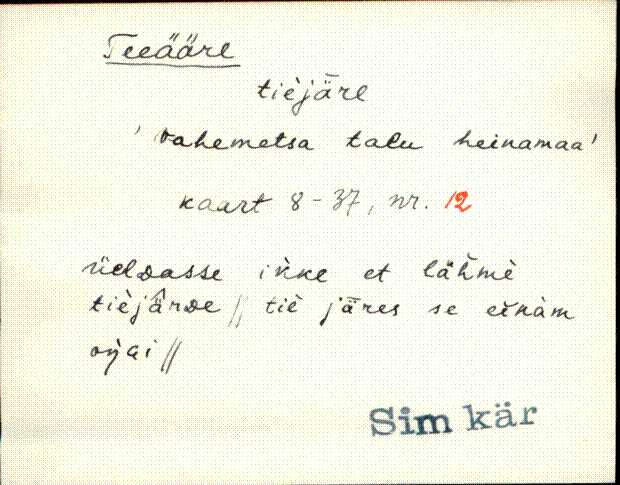 Teeääre
tièjäre
'vahemetsa talu heinamaa'
kaart 8-37, nr. 12
üeldasse ikke et lähmè
tièjärde // tiè järes se
//
Sim kär